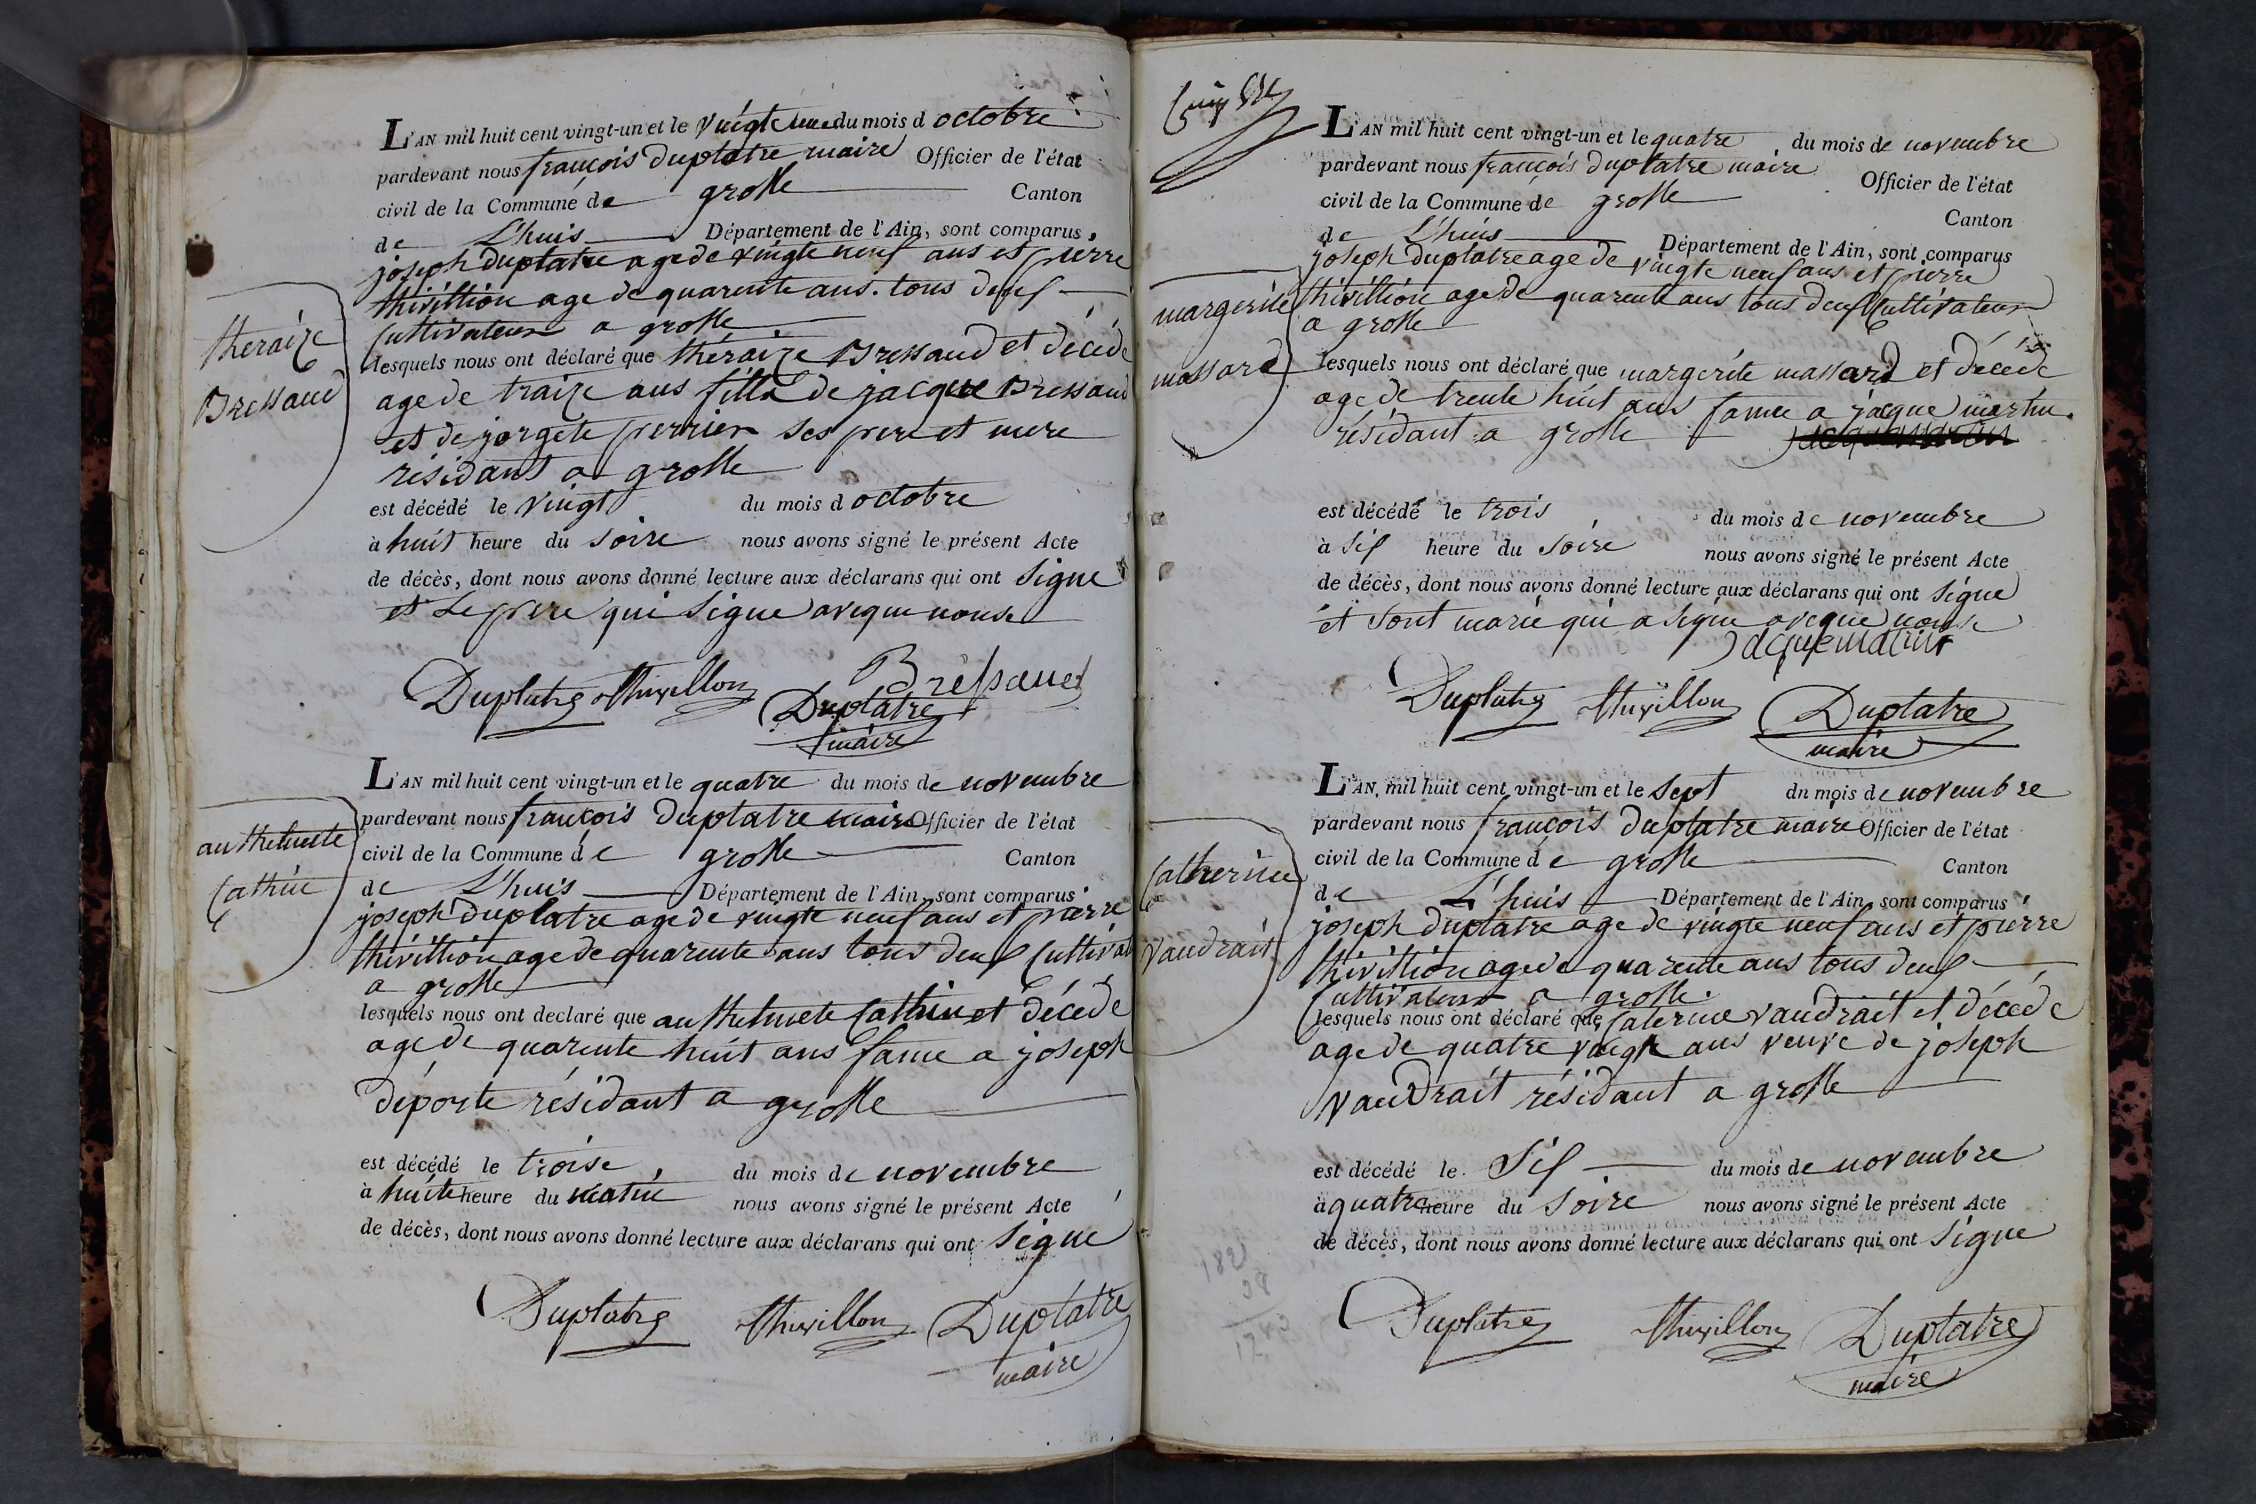 L'AN mil huit cent vingt-un et le vuigt une du mois d octobre
pardevant nous françois duplatre maire Officier de l'état
civil de la Commune de grosle Canton
de L'huis Département de l'Ain, sont comparus
joseph duplatre age de vingte neuf ans et pierre
thivillion age de quarente ans. tous deus
Cultivateur a grosle
lesquels nous ont déclaré que théraize Bressaud et décéde
age de traize ans fille de jacque Bressaud
et de jorgete perrier ses pere et mere
résidant a grosle
theraize
Bressaud
est décédé le vingt du mois d octobre
à huit heure du soire nous avons signé le présent Acte
de décès, dont nous avons donné lecture aux déclarans qui ont signe
et Le pere qui signe aveque nouse
Bressaud
Duplatre thivillon Duplatre
maire
L'AN mil huit cent vingt-un et le quatre du mois de novembre
pardevant nous françois duplatre maire Officier de l'état
civil de la Commune de grosle Canton
de L'huis Département de l'Ain, sont comparus
joseph duplatre age de vingte neuf ans et pierre
thivillion age de quarente ans tous deus Cultivat
a grosle
lesquels nous ont declaré que anthelmete Cathin et décéde
age de quarente huit ans fame a joseph
déporte résidant a grosle
anthelmete
Cathin
est décédé le troise du mois de novembre
à huite heure du matin nous avons signé le présent Acte
de décès, dont nous avons donné lecture aux déclarans qui ont signe
Duplatre thivillon Duplatre
maire
L'AN mil huit cent vingt-un et le quatre du mois de novembre
pardevant nous françois duplatre maire Officier de l'état
civil de la Commune de grosle Canton
de L'huis Département de l'Ain, sont comparus
joseph duplatre age de vingte neuf ans et pierre
thivillion age de quarente ans tous deus Cultivateur
a grosle
lesquels nous ont déclaré que margerite massard et décéde
age de trente huit ans fame a jacque martin.
résidant a grosle
margerite
massard
est décédé le trois du mois de novembre
à sis heure du soire nous avons signé le présent Acte
de décès, dont nous avons donné lecture aux déclarans qui ont signe
et sont marie qui a signe aveque nouse
Jacquemartin
Duplatre thivillon Duplatre
maire
L'AN, mil huit cent vingt-un et le sept dn mois de novembre
pardevant nous françois duplatre maire Officier de l'état
civil de la Commune de grosle Canton
de L'huis Département de l'Ain, sont comparus
joseph duplatre age de vingte neuf ans et pierre
thivillion age de quarente ans tous deus
Cultivateur a grosle.
lesquels nous ont déclaré que Caterine vaudrait et décéde
age de quatre vaigt ans veuve de joseph
vaudrait résidant a grosle
Catherine
vaudrait
est décédé le sis du mois de novembre
à quatre heure du soire nous avons signé le présent Acte
de décès, dont nous avons donné lecture aux déclarans qui ont signe
Duplatre thivillon Duplatre
maire